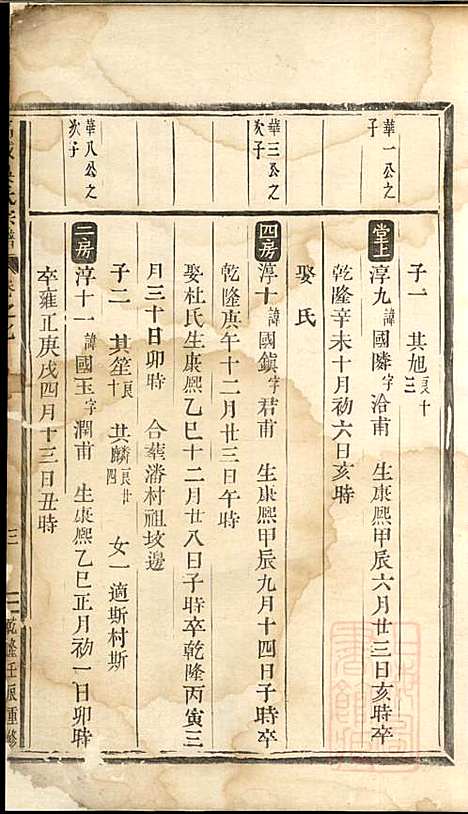 華一公之
子
華三公之
次子
華八公之
次子
子一 其旭 良十三
堂上 淳九 諱國隣 字洽甫 生康熙甲辰六月廿三日亥時卒
乾隆辛未十月初六日亥時
娶氏
四房 淳十 諱國鎮 字君甫 生康熙甲辰九月十四日子時卒
乾隆庚午十二月廿三日午時
娶杜氏生康熙乙巳十二月廿八日子時卒乾隆丙寅三
月三十日卯時 合葬潘村祖坟邊
子二 其笙 良十 其麟 良廿四 女一適斯村斯
二房 淳十一 諱國玉 字潤甫 生康熙乙巳正月初一日卯時
卒雍正庚戌四月十三日丑時
三 乾隆壬辰重修